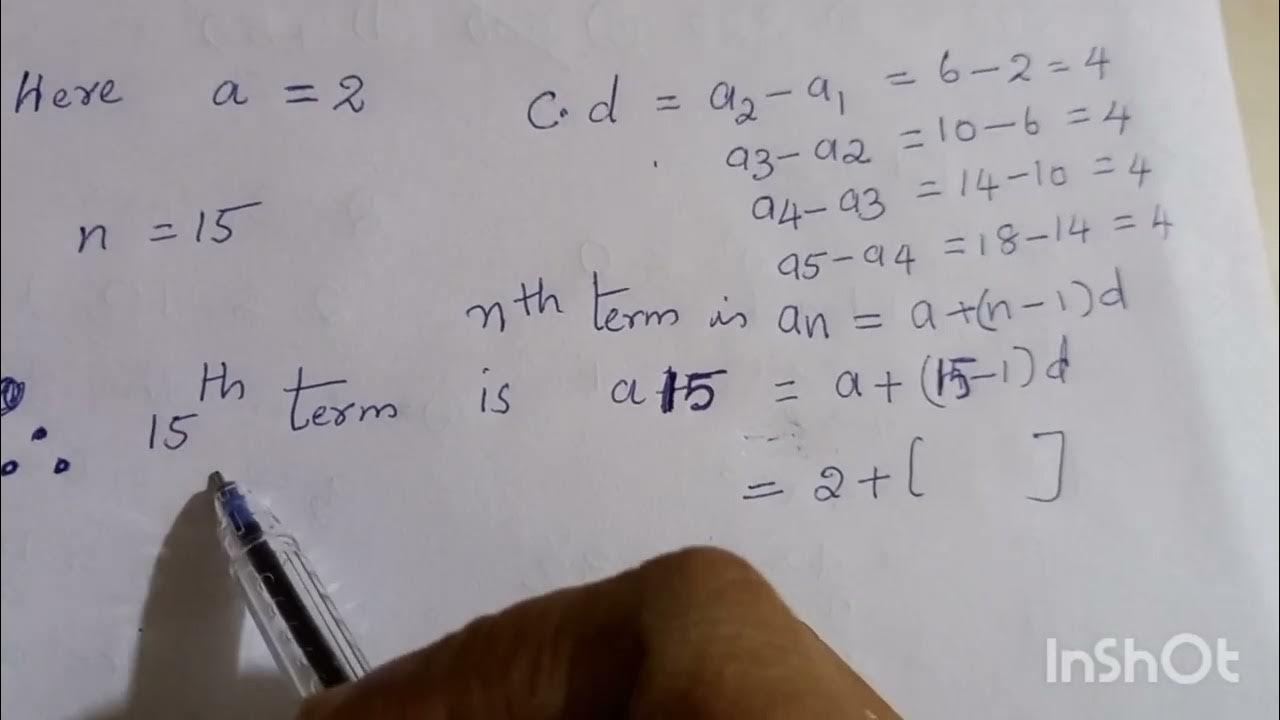 Here a = 2 C.d = a2 - a1 = 6 - 2 = 4
a3 - a2 = 10 - 6 = 4
a4 - a3 = 14 - 10 = 4
n = 15
a5 - a4 = 18 - 14 = 4
nth term is an = a + (n - 1)d
∴ 15th term is a15 = a + (15 - 1)d
= 2 + [ ]
InShOt